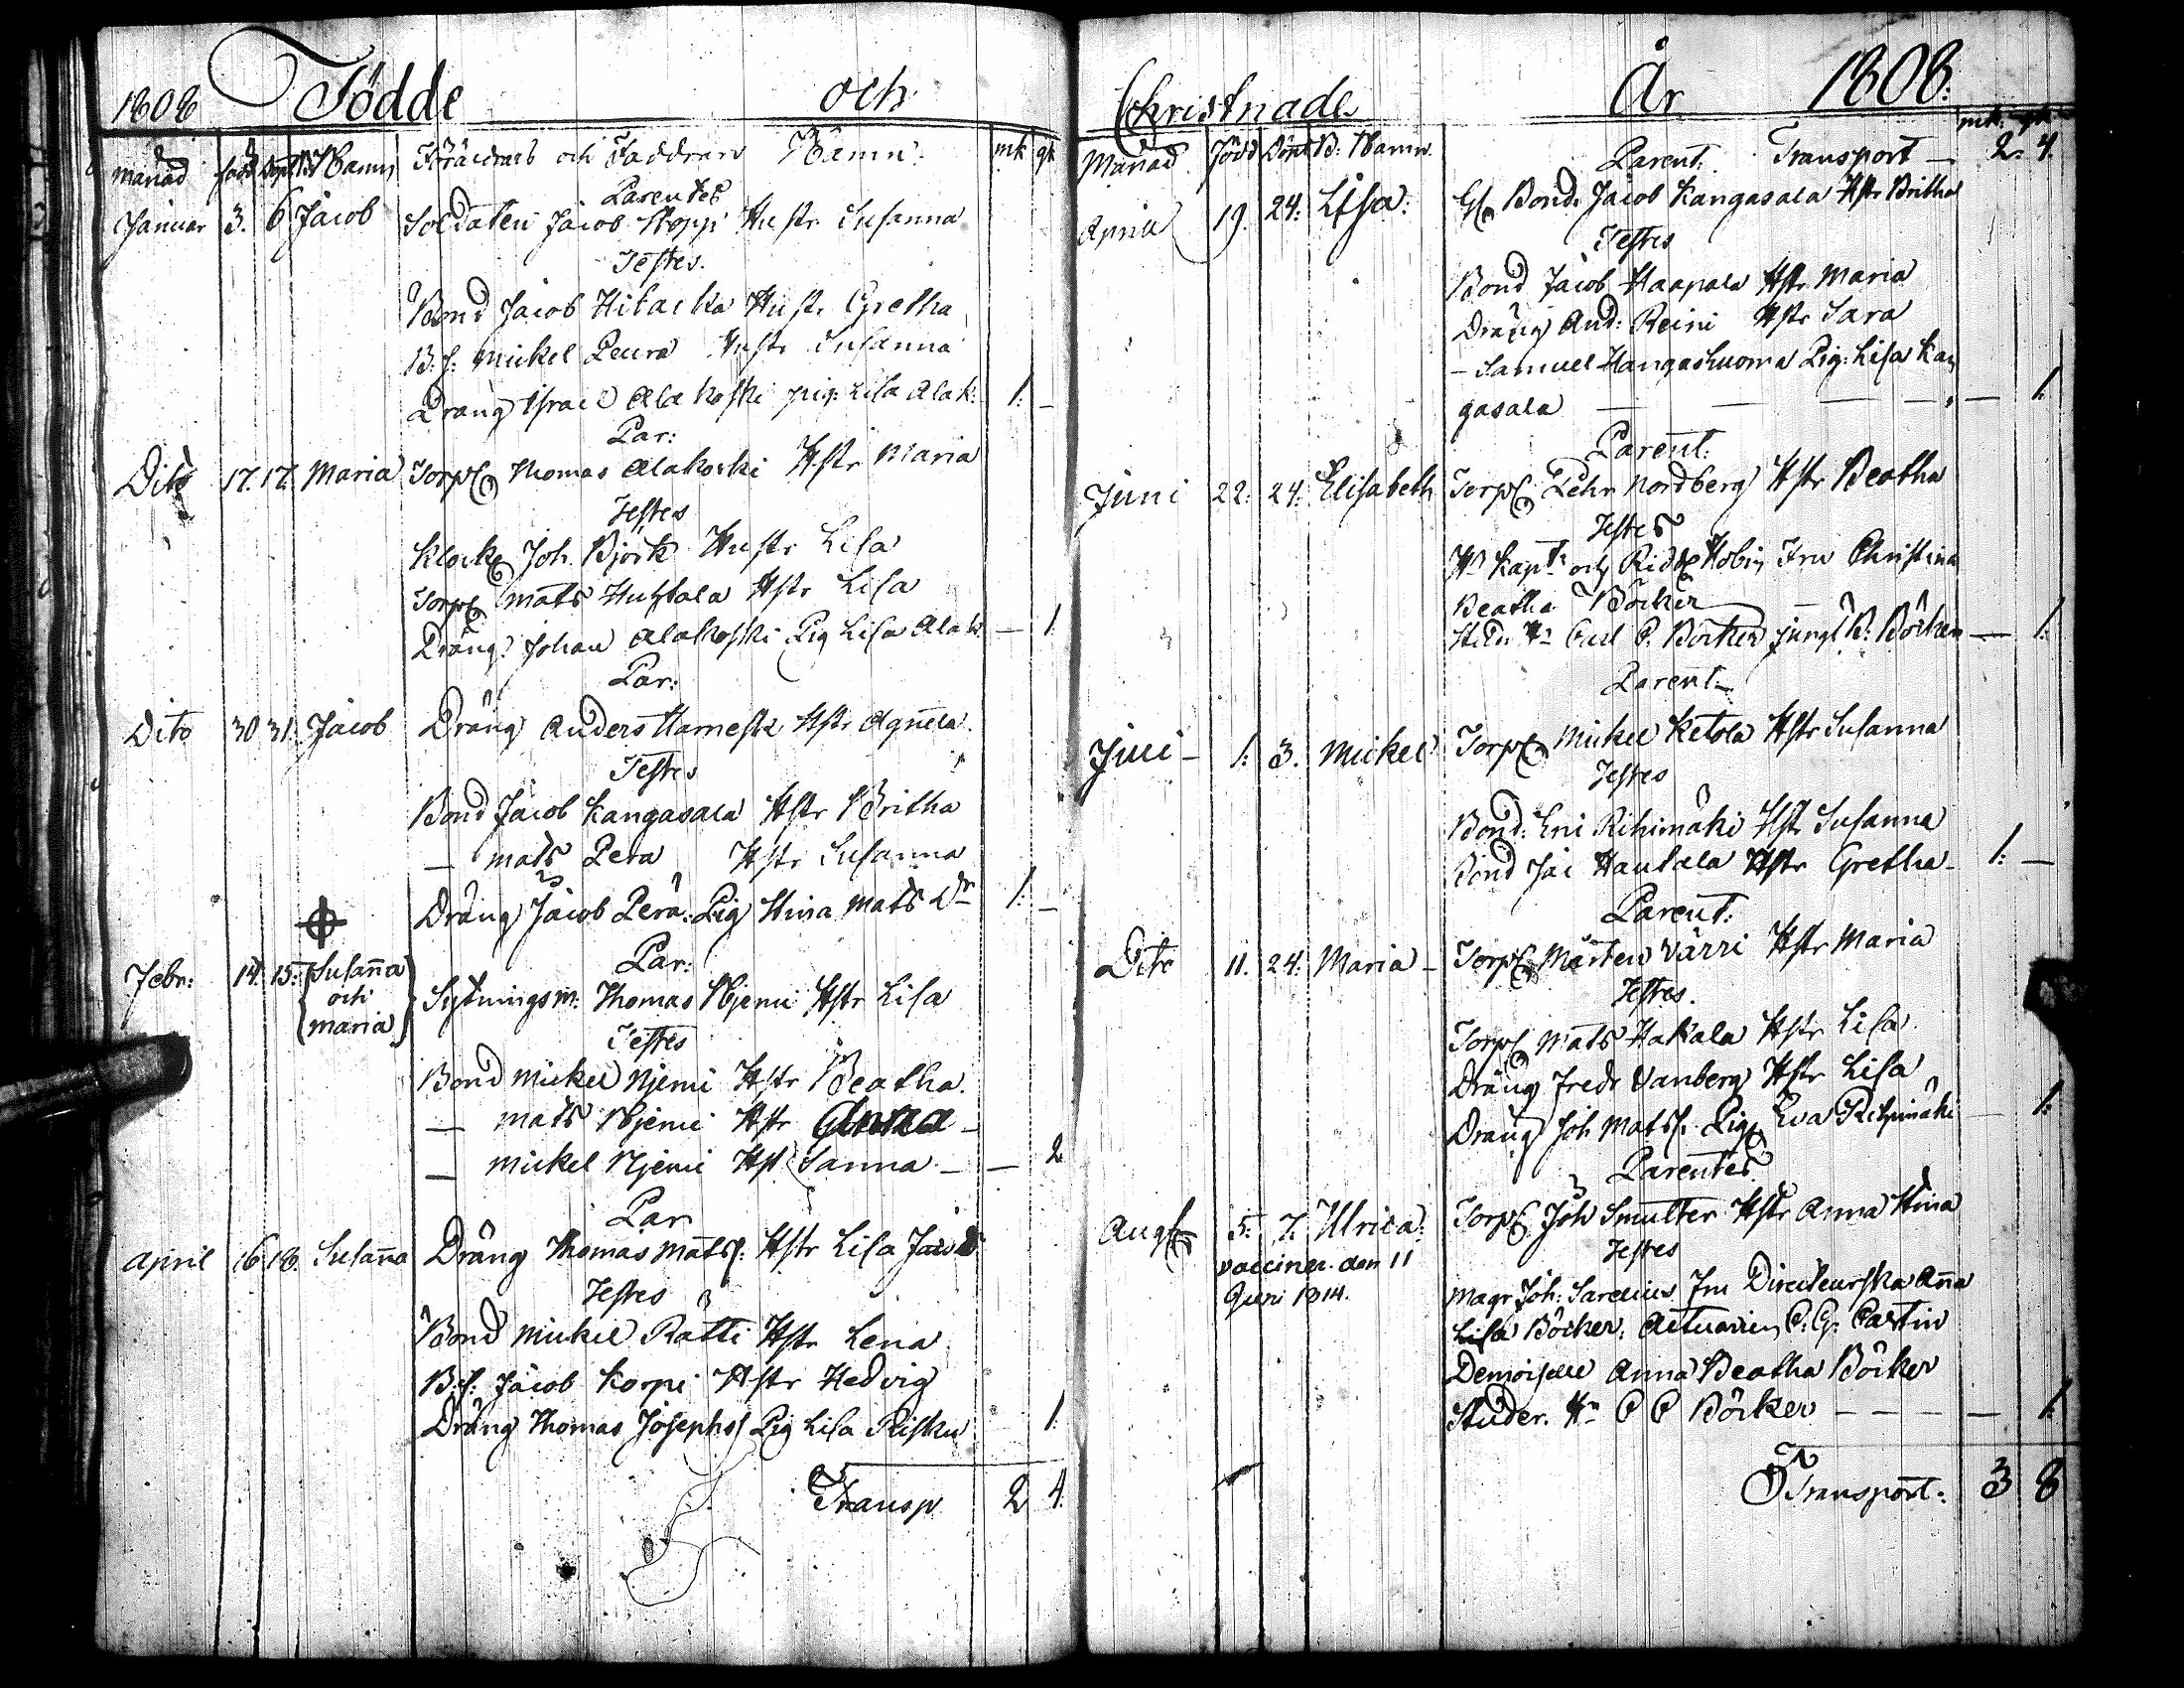 1808 Födde och
månad född döpt B. Namn Föräldrars och Faddrars Namn. mk qk
Parentes
Januar 3. 6 Jacob Soldaten Jacob Hopp Hustr Susanna
Testes.
Bond Jacob Hilacka Hustr Gretha
B.s. Mickel Peura Hustr Susanna
Dräng Israel Alakoski pig: Lisa Alak: 1. –
Par:
Dito 17. 17. Maria Torp Thomas Alakoski Hstr Maria
Testes
Klock Joh. Björk Hustr Lisa
Torp Mats Huhtala Hstr Lisa
Dräng Johan Alakoski Pig Lisa Alak. – 1
Par:
Dito 30 31. Jacob Dräng Anders Harnesk Hstr Agneta
Testes
Bond Jacob Kangasala Hstr Britha
– Mats Pera Hstr Susanna
Dräng Jacob Perä. Pig Stina Mats Dr 1. –
Par:
Febr: 14. 15. Susaña
och
Maria
Sytningsm: Thomas Njemi Hstr Lisa
Testes
Bond Mickel Njemi Hstr Beatha.
– Mats Njemi Hstr Anna –
– Mickel Njemi Hst Sanna – – 2
Par
April 16 18. Susaña Dräng Thomas Matss: Hstr Lisa Jacobs
Testes
Bond Mickel Rätti Hstr Lena
B.s: Jacob Korpi Hstr Hedvig
Dräng Thomas Josephs Pig Lisa Risku 1.
Transp 2 4.
Christnade År 1808.
Månad Född Döpt B: Namn. mk: qk
Parent: Transport – 2. 4.
April 19. 24: Lisa: Bond Jacob Kangasala Hstr Britha
Testes
Bond Jacob Haapala Hstr Maria
Dräng And: Reini Hstr Sara
– Samuel Kangashuoma Pig: Lisa Kan
gasala – – – – 1.
Parent:
Juni 22: 24: Elisabeth Torp Pehr Nordberg Hstr Beatha
Testes
Hr Kapt: och Ridd Kobin Fru Christina
Beatha Böcker
Stud. Hr Carl P. Böcker jungf B: Böcker – 1:
Parent –
Juli – 1: 3. Mickel Torp Mickel Ketola Hstr Susanna
Testes
Bond: Eri Rihimäki Hstr Susanna
Bond Jac Hautala Hstr Gretha – 1: –
Parent:
Dito 11. 24: Maria – Torp Mårten Värri Hstr Maria
Testes.
Torp Mats Hakala Hstr Lisa
Dräng Fredr Vanberg Hstr Lisa
Dräng Joh Matss. Pig Eva Rihimäki – 1:
Parentes
Aug 5. 7. Ulrica: Torp Joh Smulter Hstr Anna Stina
vacciner. den 11
Juni 1814.
Testes
Magr Joh: Sarelius Fru Directeurska Aña
Lisa Böcker, Actuarien C: G: Castrin
Demoiselle Anna Beatha Böcker
Studer. Hr C P Böcker – – – – 1.
Transport: 3 8